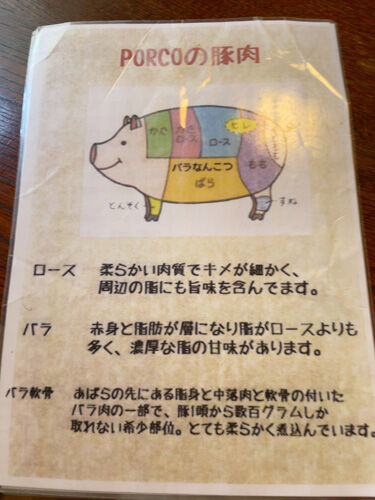 PORCOの豚肉
かた
かた
ロース
ロース
ヒレ
もも
バラなんこつ
ばら
とんそく
すね
ロース 柔らかい肉質でキメが細かく、
周辺の脂にも旨味を含んでます。
バラ 赤身と脂肪が層になり脂がロースよりも
多く、濃厚な脂の甘味があります。
バラ軟骨 あばらの先にある脂身と中落肉と軟骨の付いた
バラ肉の一部で、豚1頭から数百グラムしか
取れない希少部位。とても柔らかく煮込んでいます。